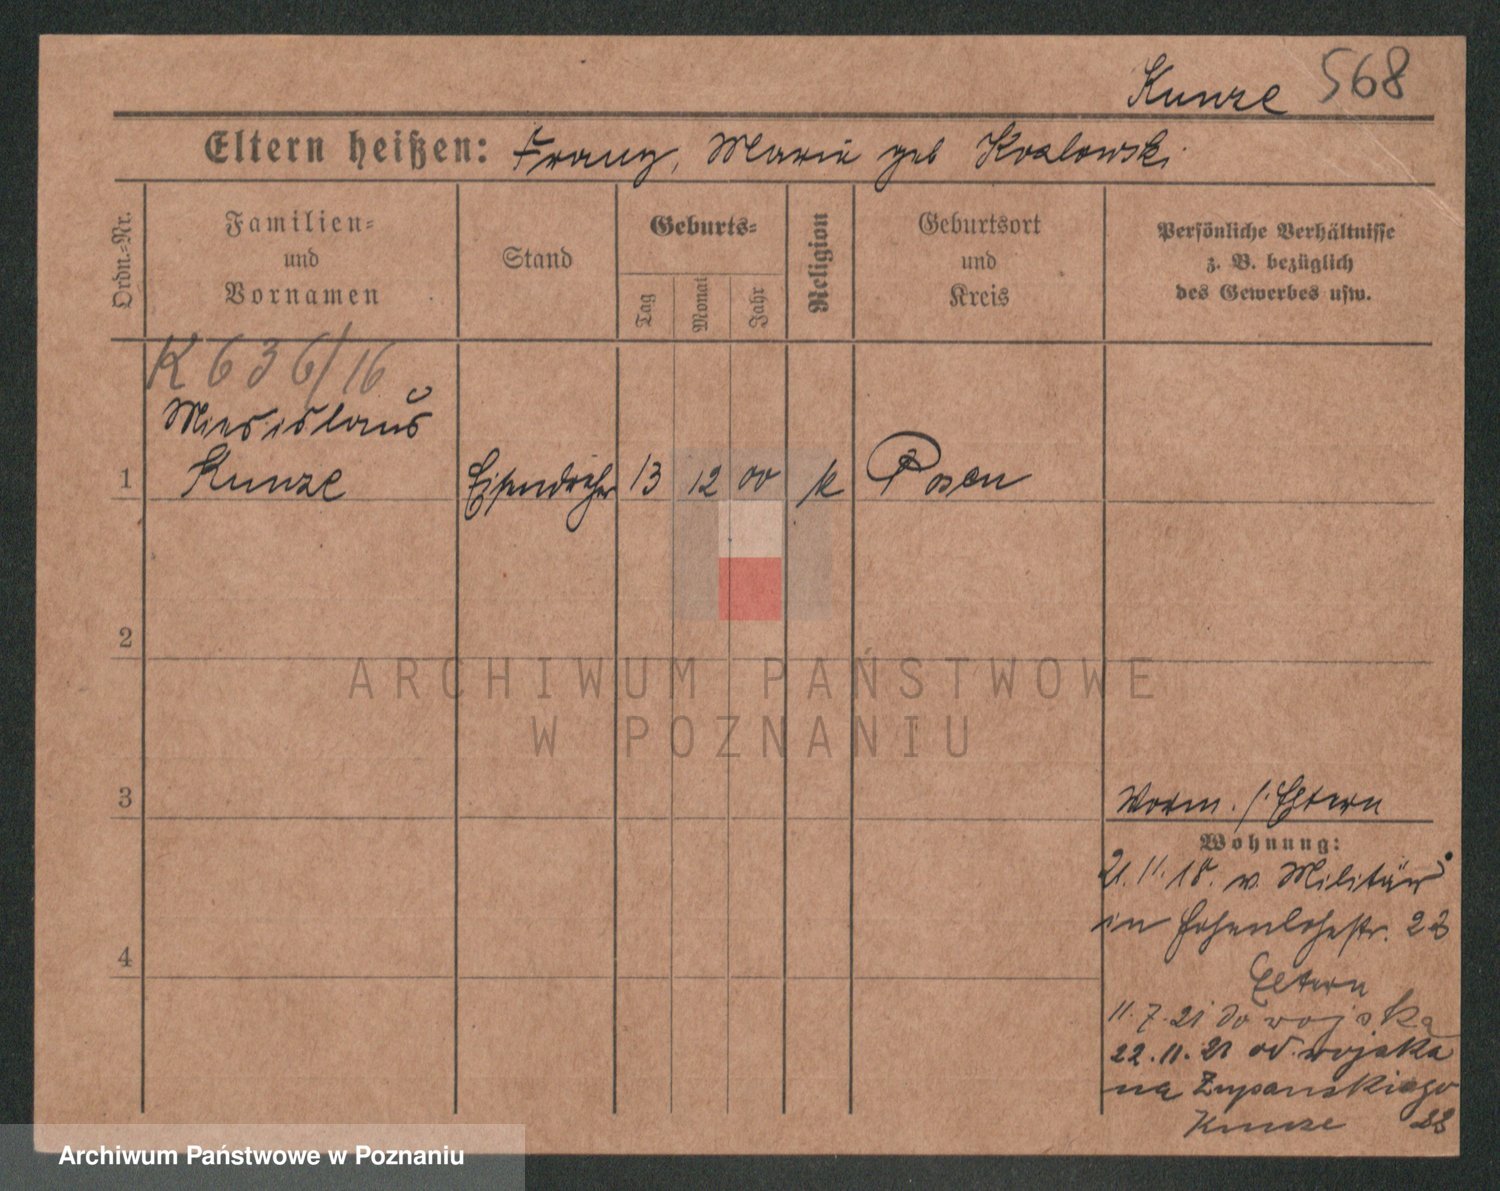 Kunze 568
Eltern heißen: Franz, Marie geb Kozlowski
Ordn.-Nr.
Familien-
und
Vornamen
Stand
Geburts-
Tag
Monat
Jahr
Religion
Geburtsort
und
Kreis
Persönliche Verhältnisse
z. B. bezüglich
des Gewerbes usw.
K 636/16
Miecislaus
1 Kunze Eisendreher 13 12 00 k Posen
2
ARCHIWUM PAŃSTWOWE
W POZNANIU
3
Eltern
Wohnung:
21.11.18. v. Militär
in Hohenlohestr. 23
4
Eltern
11.7.21 do wojska
22.11.21 od wojska
na Żupańskiego
Kunze 23
Archiwum Państwowe w Poznaniu